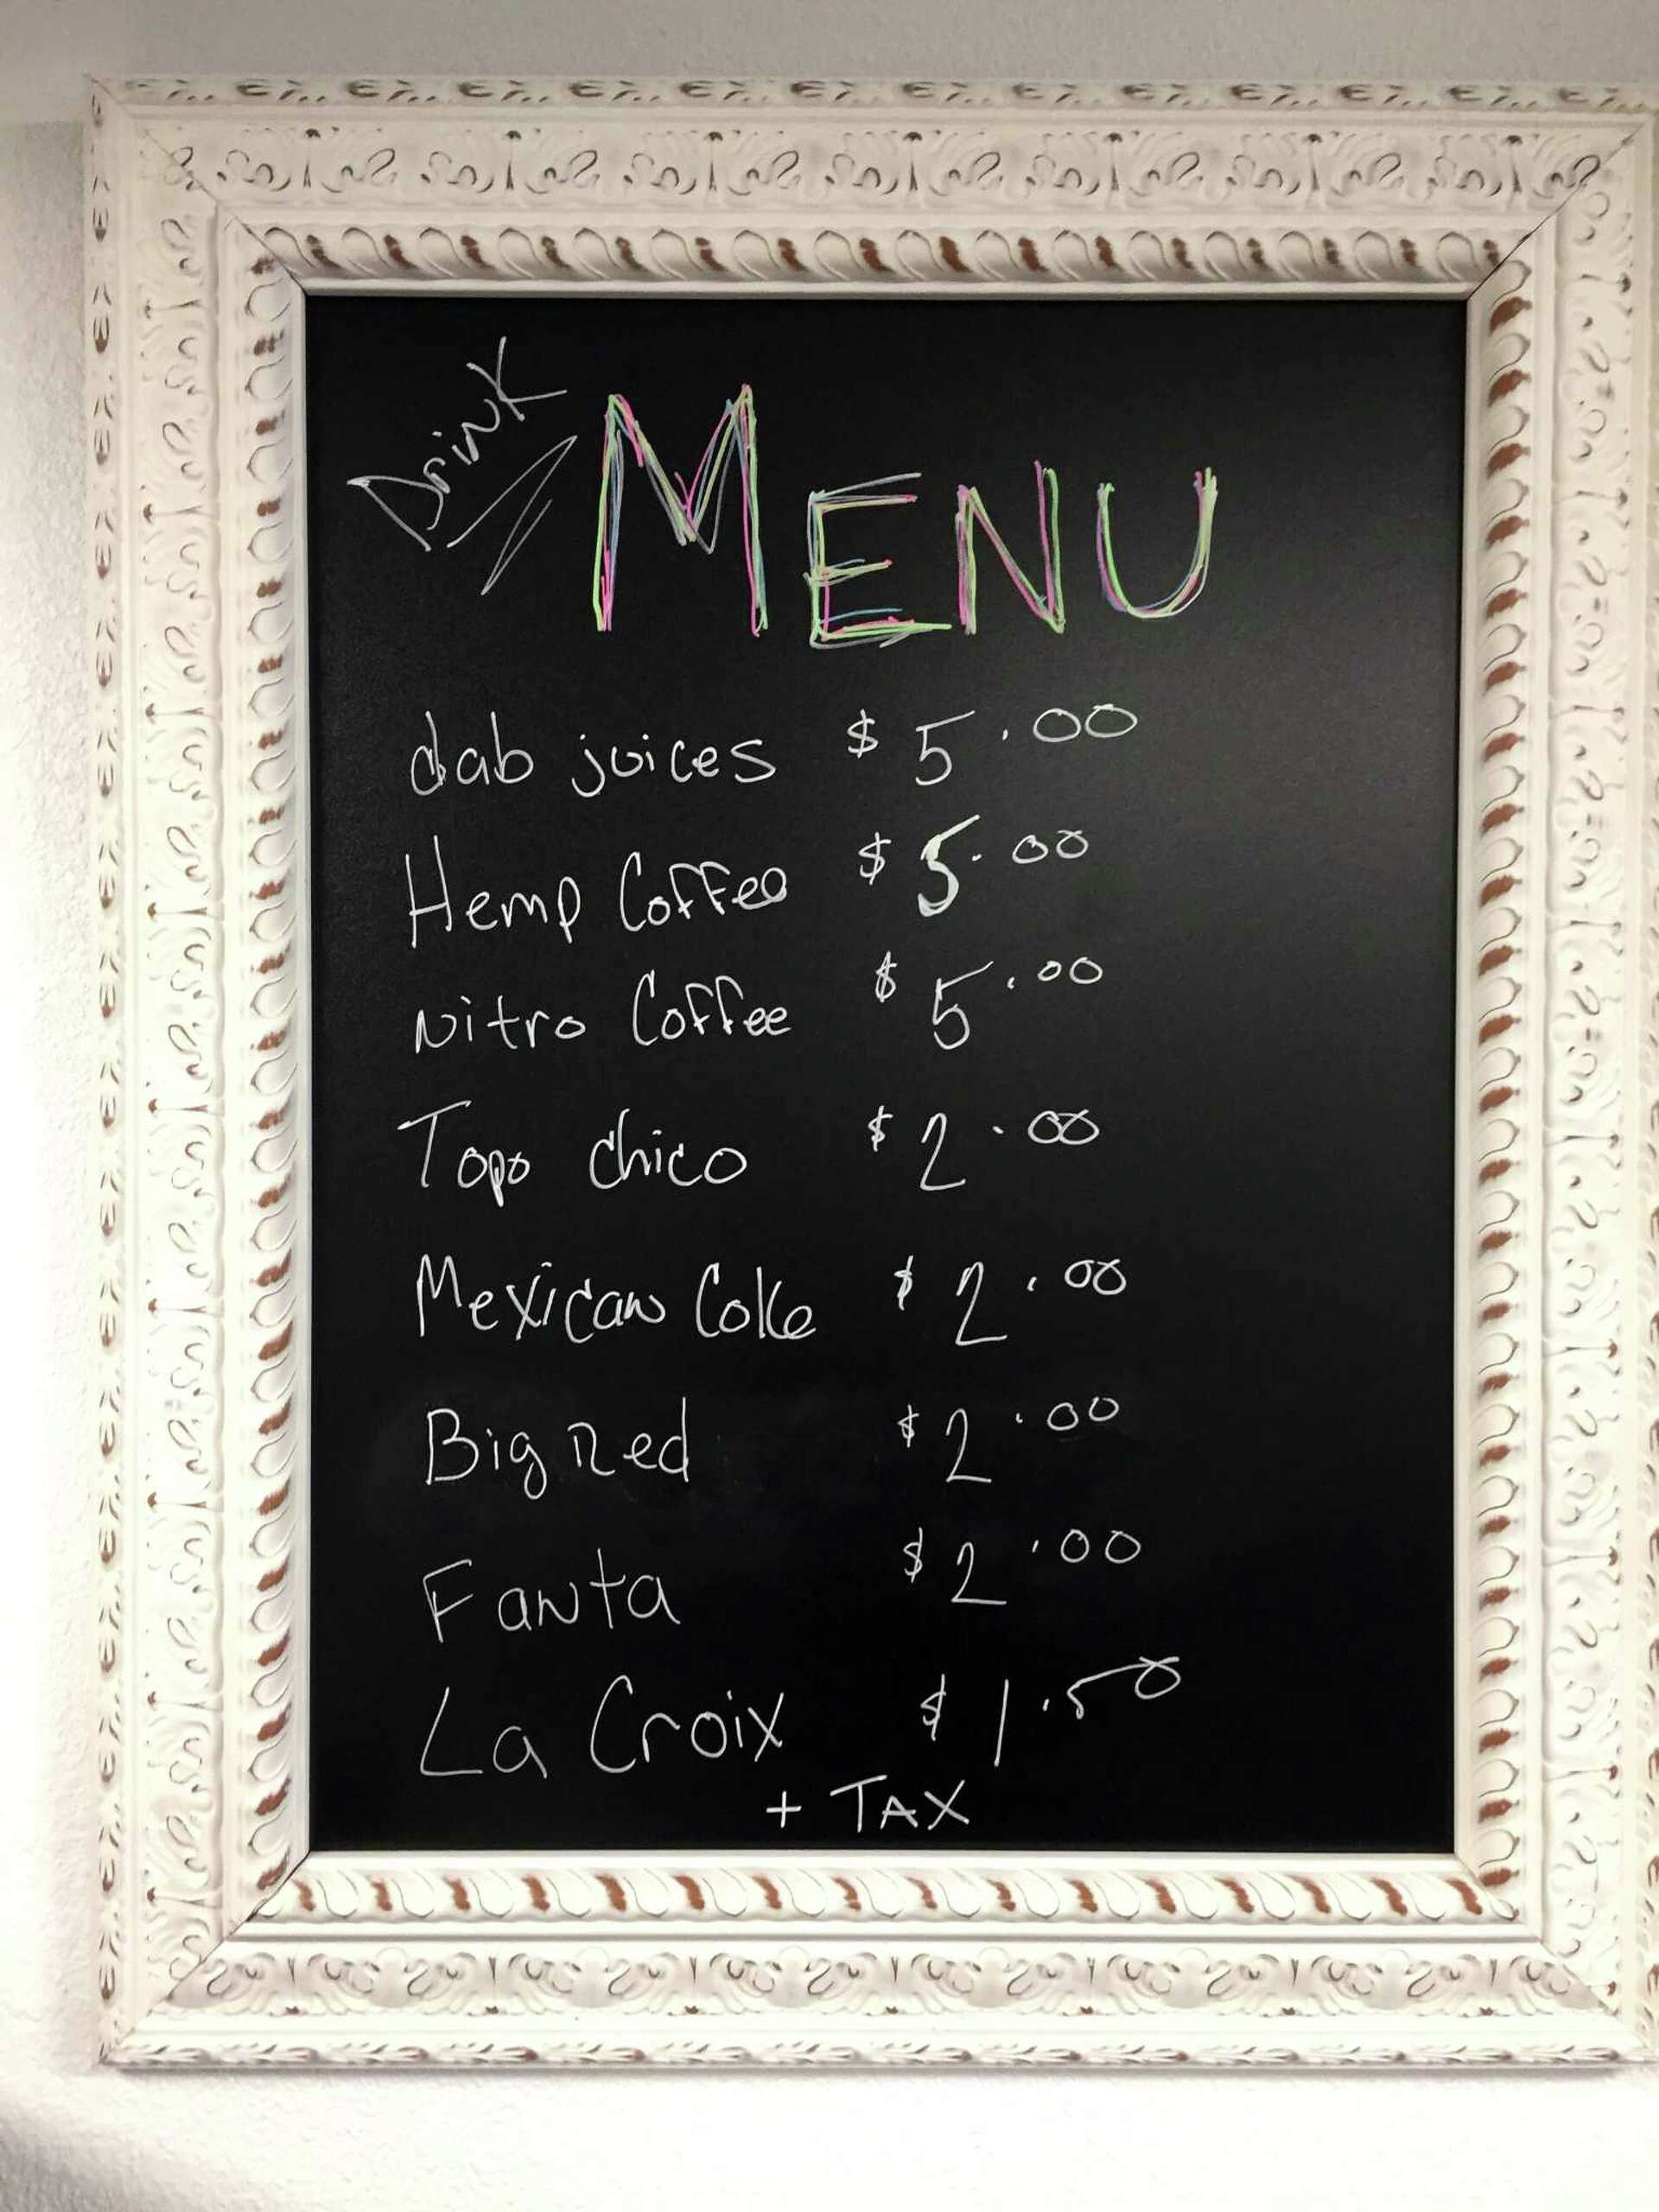 Drink
MENU
dab juices $5.00
Hemp Coffee $5.00
Nitro Coffee $5.00
Topo chico $2.00
Mexican Coke $2.00
Big Red $2.00
Fanta $2.00
La Croix $1.50
+ TAX